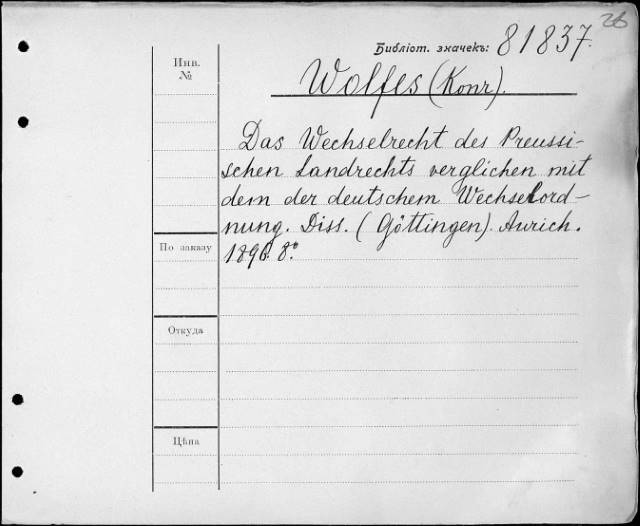 26
Библіот. значекъ: 81837.
Инв.
№
Wolfes (Konr).
Das Wechselrecht des Preussi-
schen Landrechts verglichen mit
dem der deutschem Wechselord-
nung. Diss. (Göttingen). Aurich.
1896. 8º
По заказу
Откуда
Цѣна